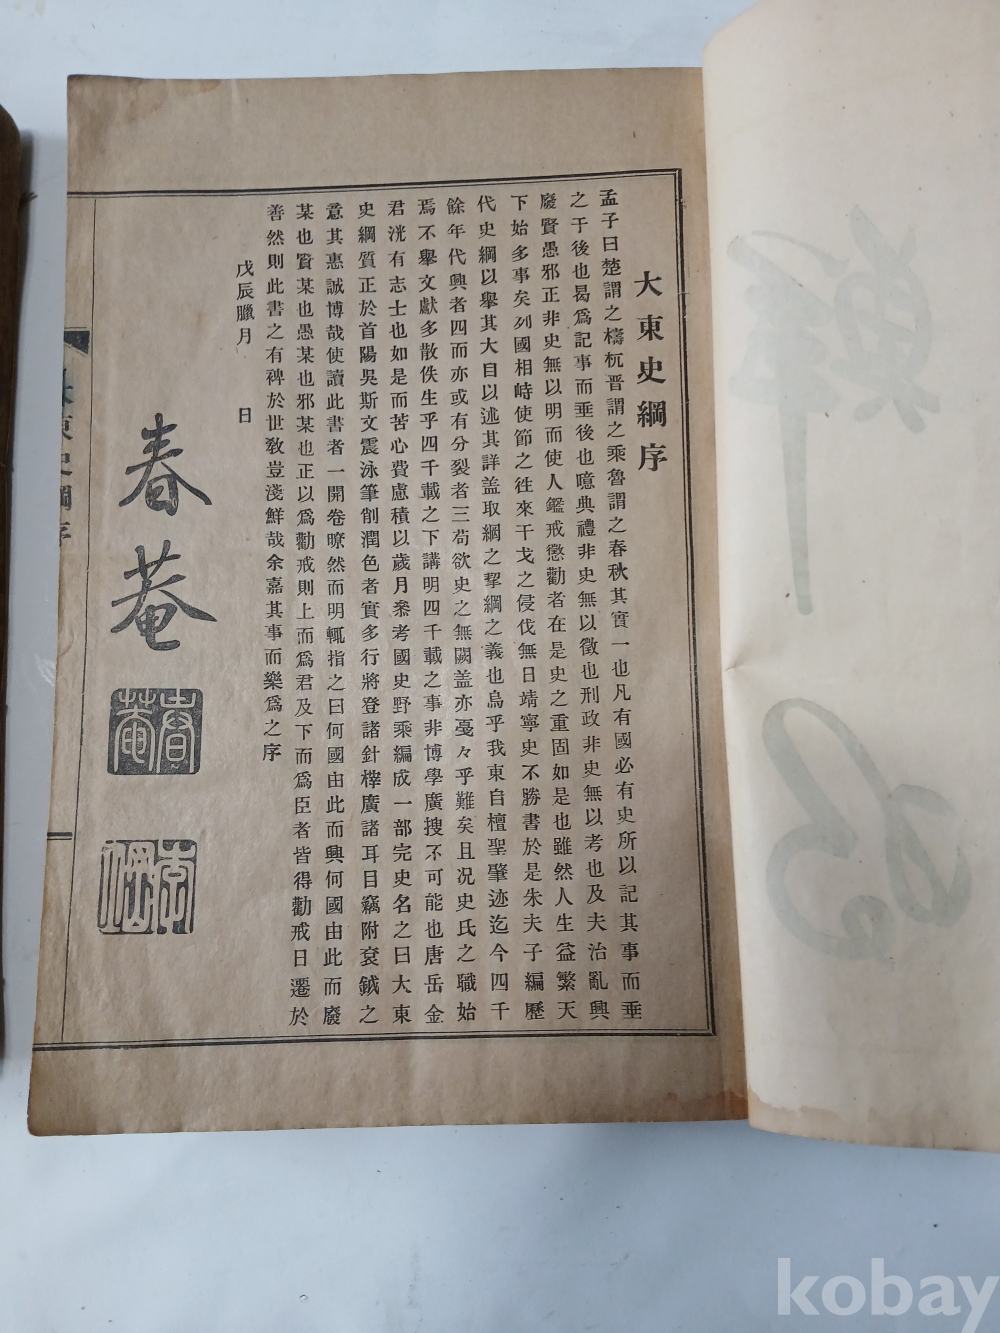 大東史綱序
孟子曰楚謂之檮杌晋謂之乘魯謂之春秋其實一也凡有國必有史所以記其事而垂
之于後也曷爲記事而垂後也噫典禮非史無以徵也刑政非史無以考也及夫治亂興
廢賢愚邪正非史無以明而使人鑑戒懲勸者在是史之重固如是也雖然人生益繁天
下始多事矣列國相峙使節之徃來干戈之侵伐無日靖寧史不勝書於是朱夫子編歷
代史綱以舉其大目以述其詳盖取綱之挈綱之義也烏乎我東自檀聖肇迹迄今四千
餘年代興者四而亦或有分裂者三苟欲史之無闕盖亦戞々乎難矣且况史氏之職始
焉不擧文獻多散佚生乎四千載之下講明四千載之事非博學廣搜不可能也唐岳金
君洸有志士也如是而苦心費慮積以歲月叅考國史野乘編成一部完史名之曰大東
史綱質正於首陽吳斯文震泳筆削潤色者實多行將登諸針榟廣諸耳目竊附袞鉞之
意其惠誠博哉使讀此書者一開卷暸然而明輒指之曰何國由此而興何國由此而廢
某也賢某也愚某也邪某也正以爲勸戒則上而爲君及下而爲臣者皆得勸戒日遷於
善然則此書之有裨於世教豈淺鮮哉余嘉其事而樂爲之序
戊辰臘月　日
春菴
春菴
大東史綱序
kobay